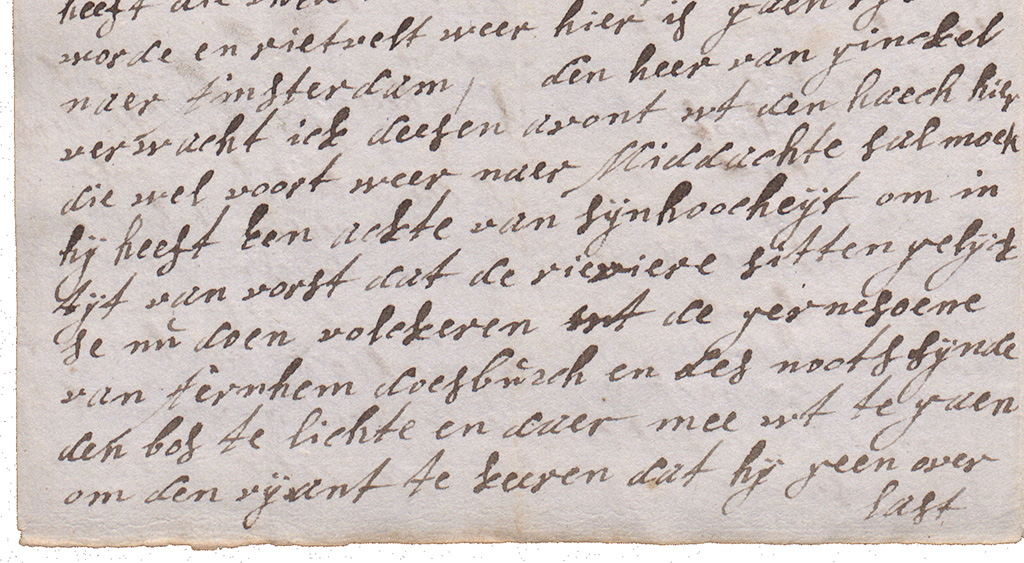 heeft die
worde en rietvelt weer hier is gaen
naer Amsterdam / den heer van ginckel
verwacht ick deesen avont wt den haech hier
die wel voort weer naer Middachte sal moete
hij heeft een ackte van sijn hoocheijt om in
tijt van vorst dat de rieviere sitten gelijck
se nu doen volckeren wt de gernesoene
van Aernhem doesburch en des noots sijnde
den bos te lichte en daer mee wt te gaen
om den vijant te keeren dat hij geen over
last